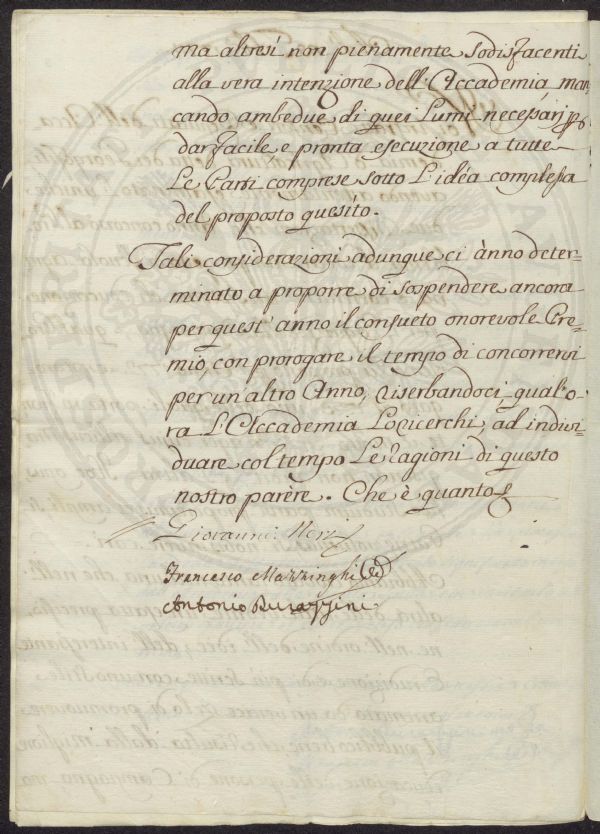 ma altresì non pienamente sodisfacenti
alla vera intenzione dell'Accademia man
cando ambedue di quei Lumi necessàrj p
dar facile e pronta esecuzione a tutte
Le Parti comprese sotto L'idéa complessa
del proposto quesito.
Tali considerazioni adunque ci ànno deter=
minato a proporre di sospendere ancora
per quest'anno il consueto onorevole Pre=
mio, con prorogare il tempo di concorrervi
per un'altro Anno, riserbandoci, qual'o=
ra L'Accademia Lo ricerchi, ad indivi=
duare col tempo Le ragioni di questo
nostro parère. Che è quanto
Giovanni Neri
Francesco Mazzinghi
Antonio Durazzini